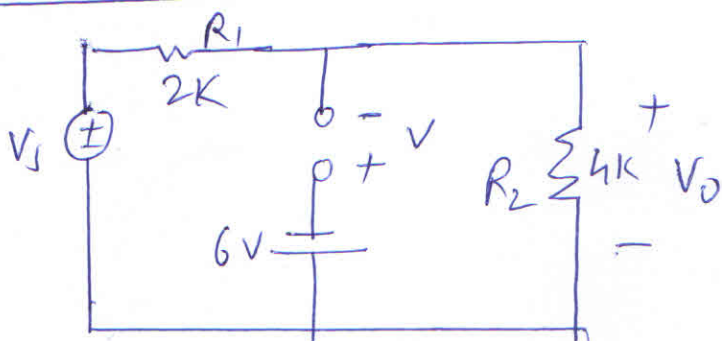 R1
2K
Vs
±
- V
+
6V
R2
4K
+
Vo
-